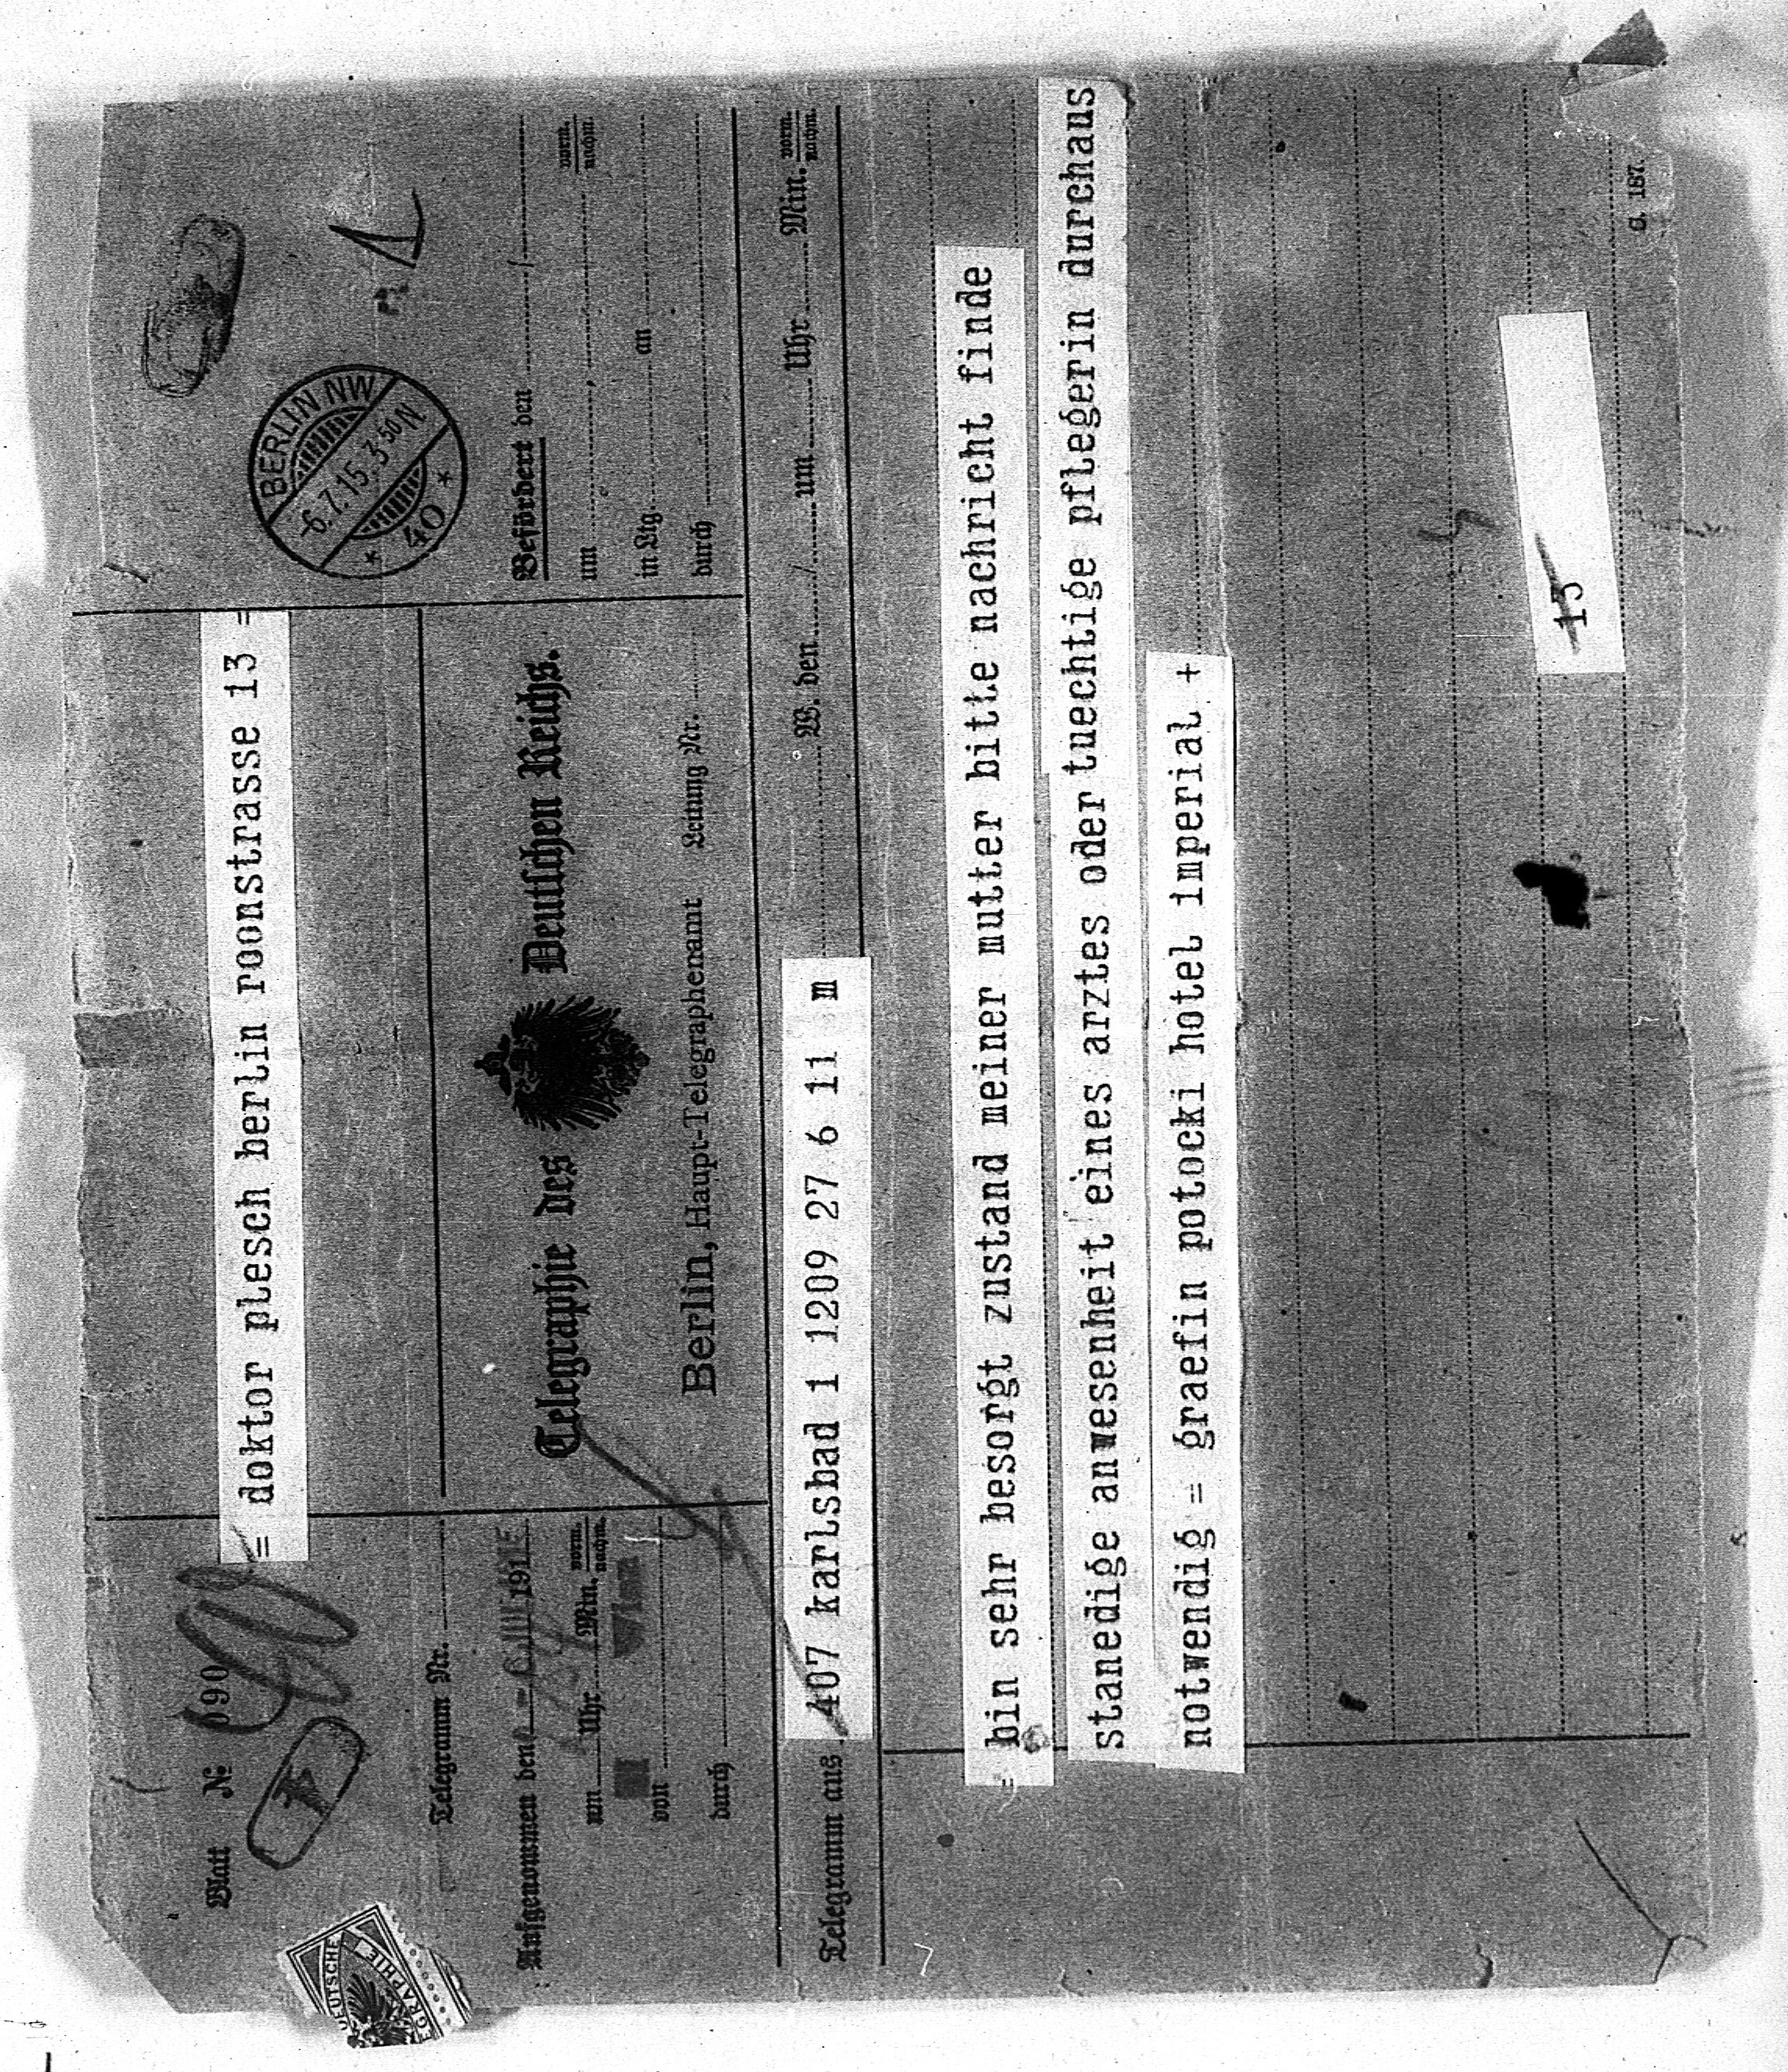 Blatt № 090
= doktor plesch berlin roonstrasse 13 =
BERLIN NW
-6.7.15. 3-50 N
* 40 *
Telegramm Nr.
Aufgenommen den 191
um Uhr Min. vorm. nachm.
von
durch
Telegraphie des Deutschen Reichs.
Berlin, Haupt-Telegraphenamt Leitung Nr.
Befördert den /
um vorm. nachm.
in Ltg. an
durch
Telegramm aus 407 karlsbad 1 1209 27 6 11 m W. den / um Uhr Min. vorm. nachm.
= bin sehr besorgt zustand meiner mutter bitte nachricht finde
stanedige anwesenheit eines arztes oder tuechtige pflegerin durchaus
notwendig = graefin potocki hotel imperial +
13
C. 187.
DEUTSCHE